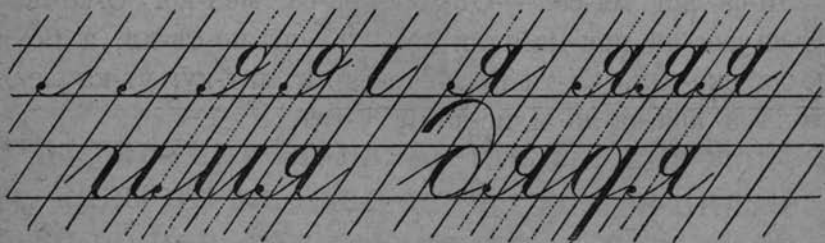 я я я я я я
имя дядя